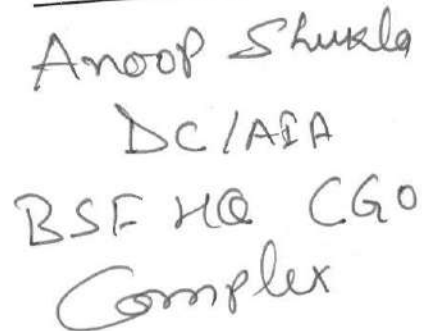 Anoop Shukla
DC/AIA
BSF HQ CGO
Complex